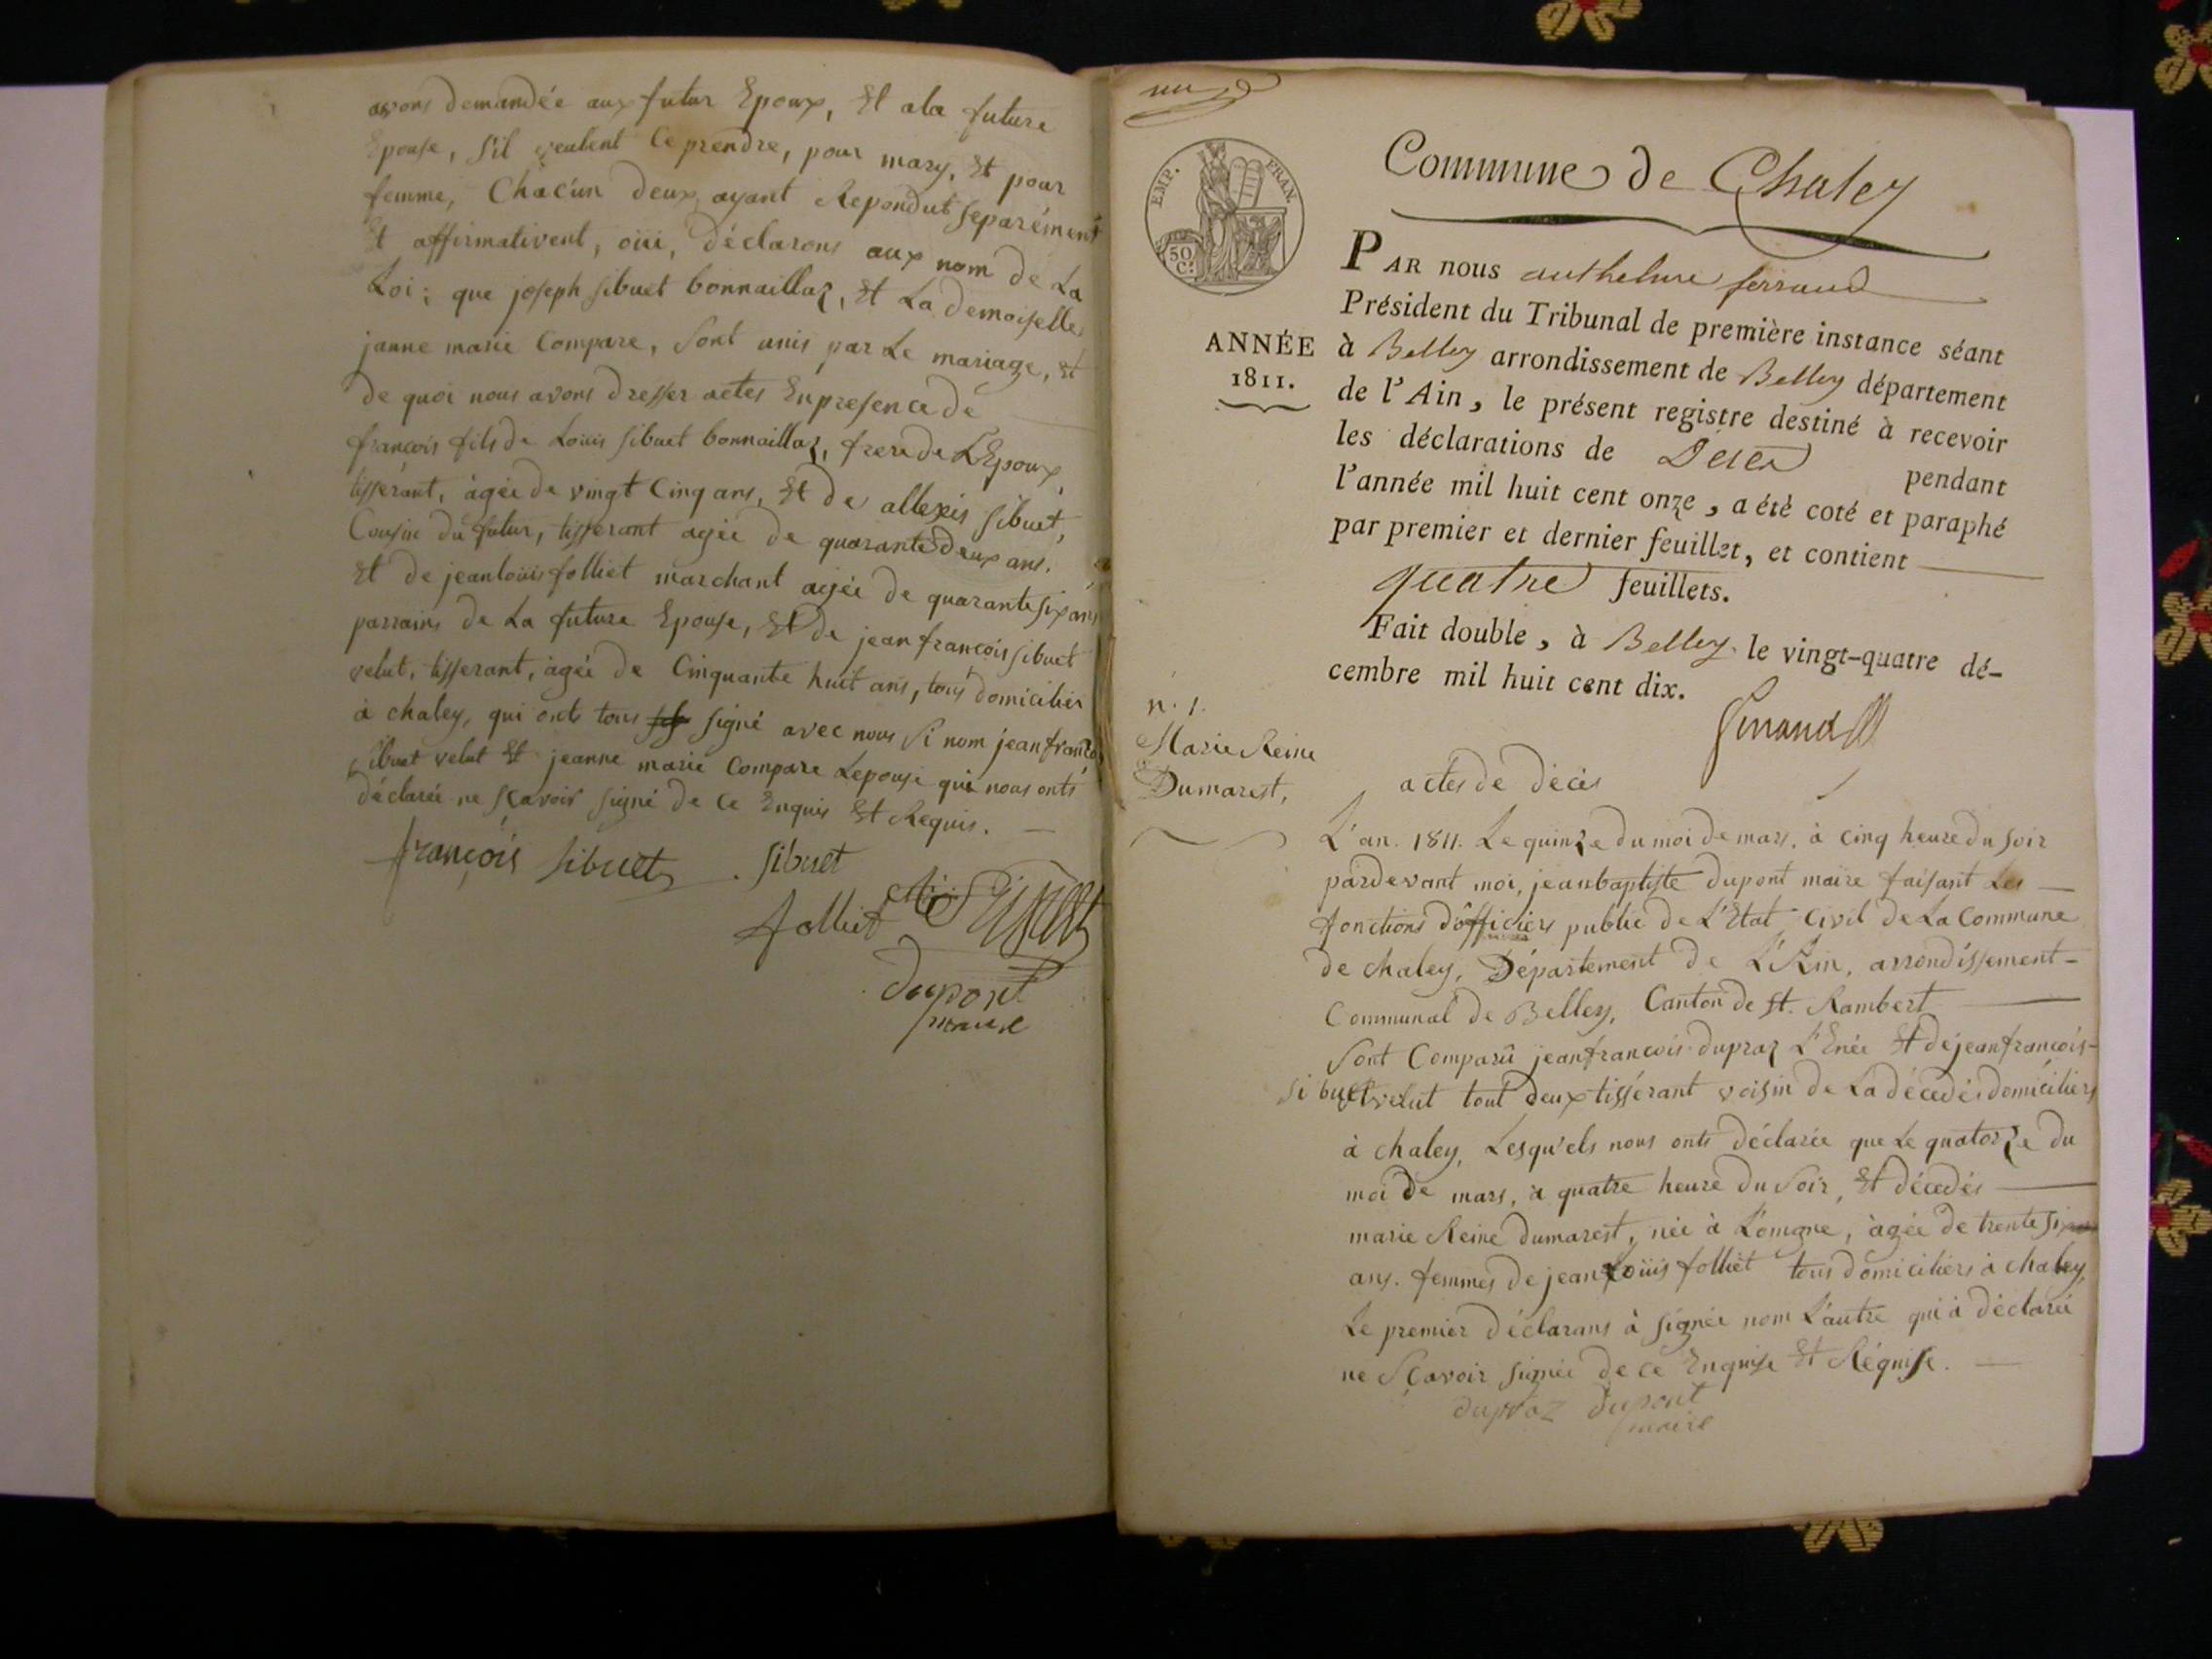 avons demandée aux futur Epoux, Et ala future
Epouse, s'il veulent Ce prendre, pour mary, Et pour
femme, Chacún deux ayant Repondut separément
Et affirmativent, oüi, déclarons aux nom de La
Loi; que joseph sibuet bonnaillaz, Et La demoiselle
janne marie Compare, sont unis par Le mariage, Et
de quoi nous avons dresser actes En presence de
françois fils de Louis sibuet bonnaillaz, frere de L'Epoux,
tisserant, àgée de vingt Cinq ans, Et de allexis sibuet,
Cousin du futur, tisserant agée de quarante deux ans.
Et de jean loüis folliet marchant agée de quarante six ans
parrains de La future Epouse, Et de jean françois sibuet
velut, tisserant, àgée de Cinquante huit ans, tous domicilier
à chaley, qui onts tous signé avec nous si nom jean françois
sibuet velut Et jeanne marie Compare Lepouse qui nous onts
déclarée ne sçavoir signé de Ce Enquis Et Requis.
françois sibuet . sibuet
folliet
dupont
maire
Commune de Chaley
EMP. FRAN.
50 C.
PAR nous anthelme ferraud
Président du Tribunal de première instance séant
ANNÉE
1811.
à Belley arrondissement de Belley département
de l'Ain, le présent registre destiné à recevoir
les déclarations de Décès pendant
l'année mil huit cent onze, a été coté et paraphé
par premier et dernier feuillet, et contient
quatre feuillets.
Fait double, à Belley le vingt-quatre dé-
cembre mil huit cent dix.
n. 1.
Marie Reine
Dumarest,
actes de décès
L'an. 1811. Le quinze du moi de mars, à cinq heure du soir
pardevant moi, jean baptiste dupont maire faisant Les
fonctions d'officiers public de L'Etat Civil de La Commune
de chaley, Département de L'Ain, arrondissement-
Communal de Belley, Canton de st. Rambert
sont Comparû jean francois dupraz L'Enée Et de jean françois-
sibuet velut tout deux tissérant voisin de La décedés domiciliers
à chaley, Lesqu'els nous onts déclarée que Le quatorze du
moi de mars, à quatre heure du soir, Et décedés
marie Reine dumarest, née à L'omgne, àgée de trente six
ans. femmes de jean Loüis folliet tous domiciliers à chaley,
Le premier déclarans à signée nom L'autre qui à déclarée
ne sçavoir signée de ce Enquise Et Réquise.
dupraz dupont
maire